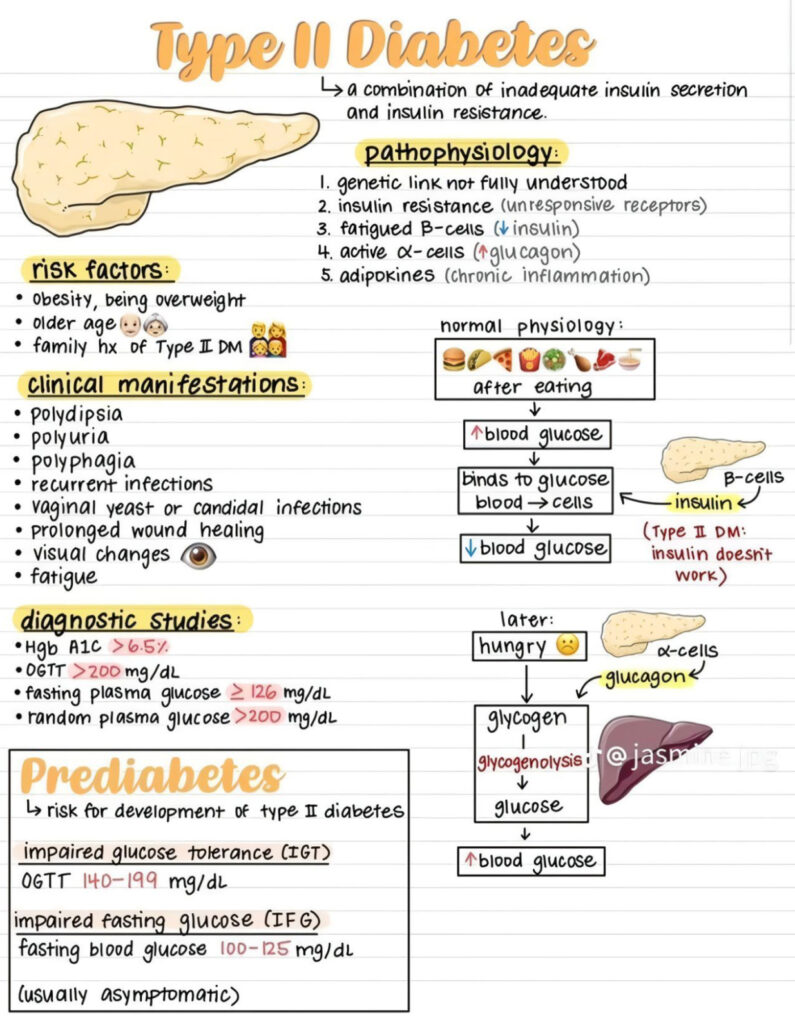 Type II Diabetes
↳ a combination of inadequate insulin secretion
and insulin resistance.
pathophysiology:
1. genetic link not fully understood
2. insulin resistance (unresponsive receptors)
3. fatigued B-cells (↓insulin)
4. active α-cells (↑glucagon)
5. adipokines (chronic inflammation)
risk factors:
• obesity, being overweight
• older age
• family hx of Type II DM
clinical manifestations:
• polydipsia
• polyuria
• polyphagia
• recurrent infections
• vaginal yeast or candidal infections
• prolonged wound healing
• visual changes
• fatigue
diagnostic studies:
• Hgb A1C >6.5%
• OGTT >200 mg/dL
• fasting plasma glucose ≥ 126 mg/dL
• random plasma glucose >200 mg/dL
Prediabetes
↳ risk for development of type II diabetes
impaired glucose tolerance (IGT)
OGTT 140-199 mg/dL
impaired fasting glucose (IFG)
fasting blood glucose 100-125 mg/dL
(usually asymptomatic)
normal physiology:
after eating
↑blood glucose
binds to glucose
blood → cells
↓blood glucose
B-cells
insulin
(Type II DM:
insulin doesn't
work)
later:
hungry
α-cells
glucagon
glycogen
glycogenolysis
glucose
↑blood glucose
@jasmine.jpg